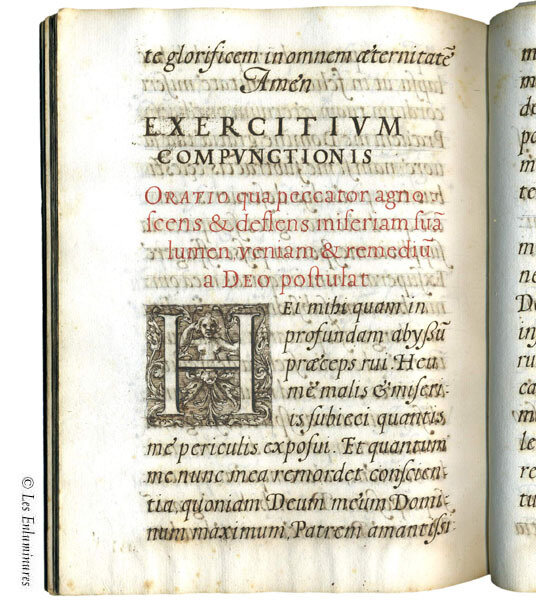 te glorificem in omnem æternitatẽ
Amen
EXERCITIVM
COMPVNCTIONIS
ORATIO qua peccator agno
scens & deflens miseriam suã
lumen, veniam, & remediũ
a DEO postulat
HEi mihi quam in
profundam abyssũ
præceps rui. Heu
me malis & miseri-
is subieci quantis
me periculis exposui. Et quantum
me nunc mea remordet conscien-
tia, quoniam Deum meum Domi-
num maximum, Patrem amantissi
© Les Enluminures